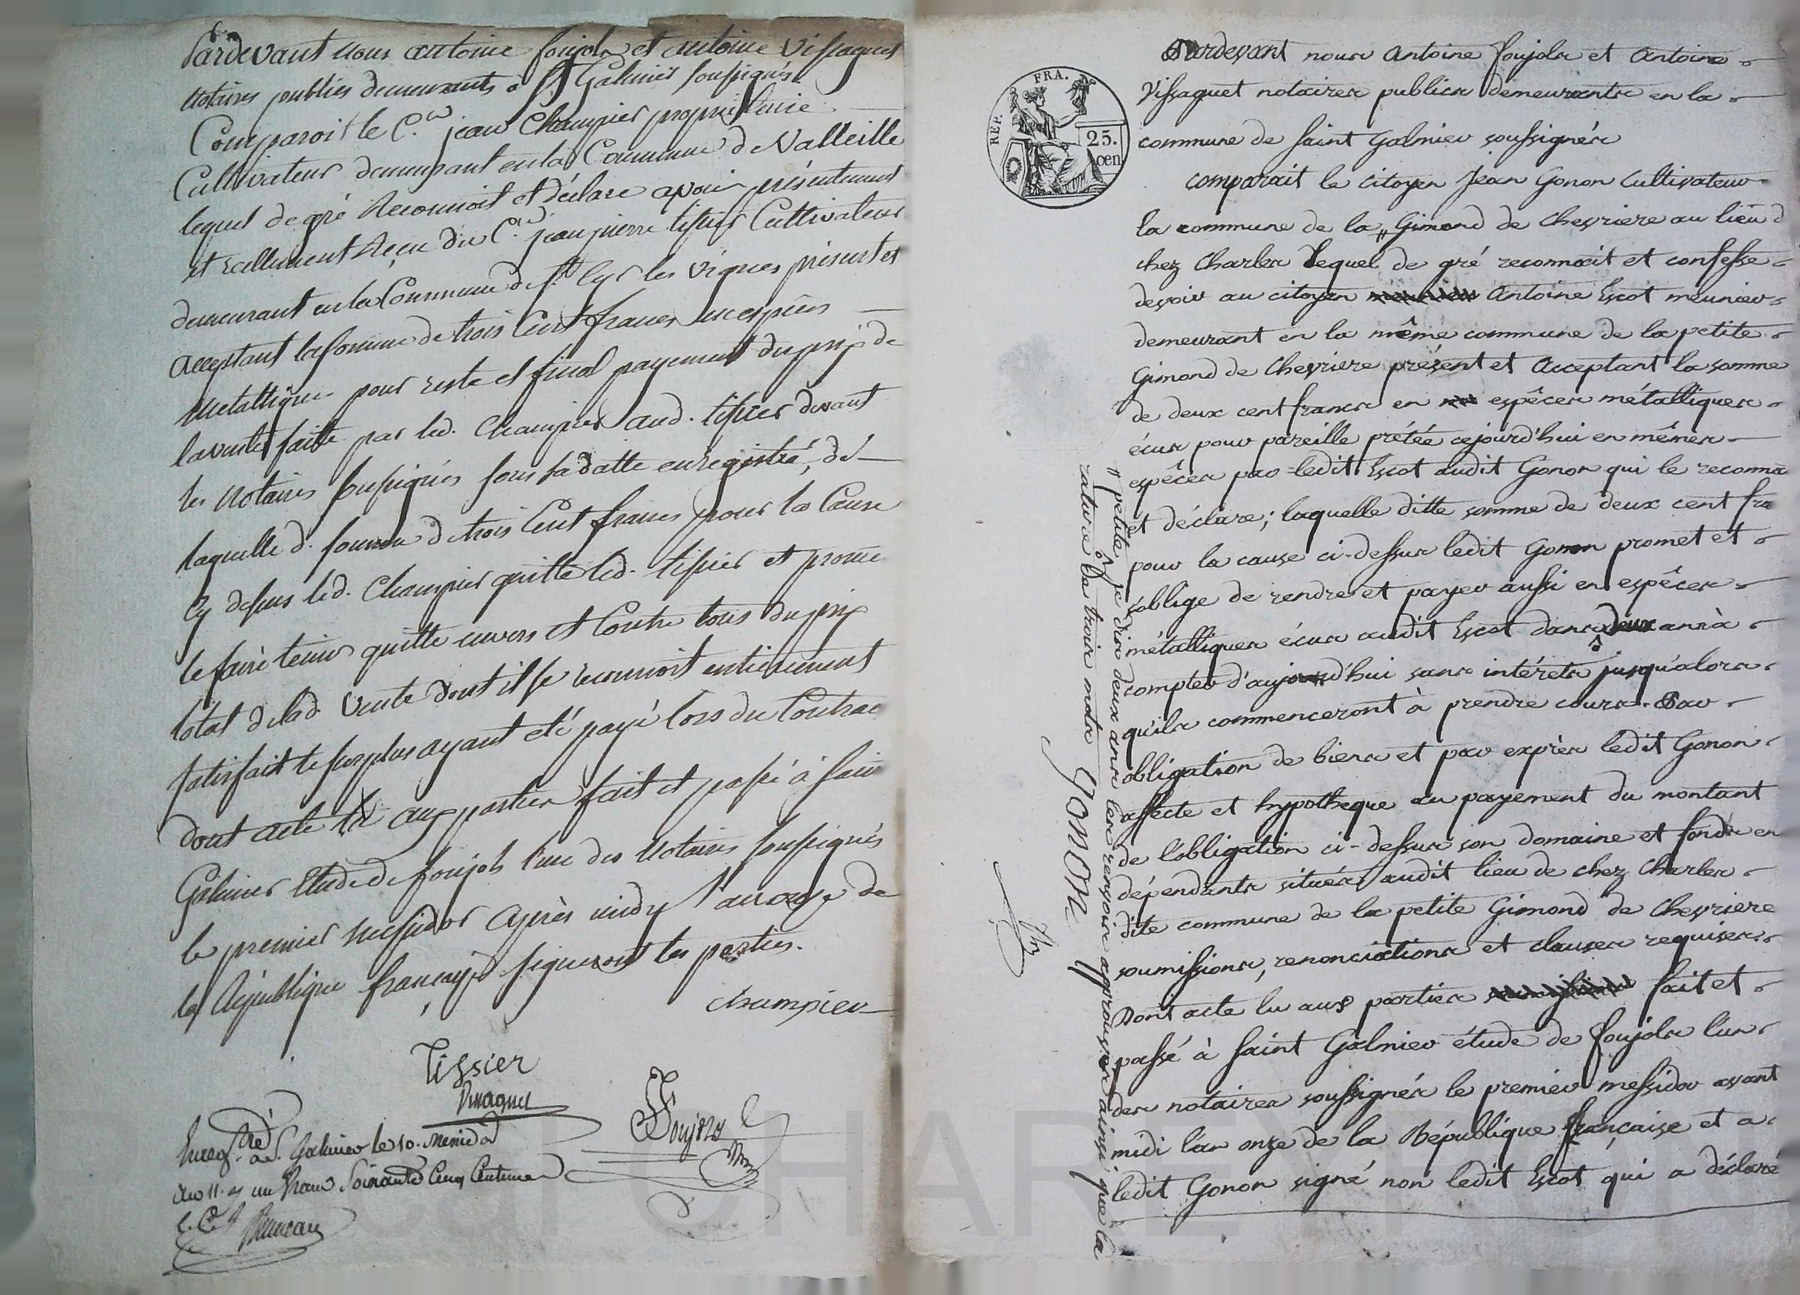 Pardevant nous antoine foujols et antoine Vissaguet
notaires publics demeurants a St Galmier soussignés
Comparoit le C.en jean Champier proprietaire
Cultivateur demeurant en la Commune de Valleille
lequel de gré reconnoit et déclare avoir présentement
et reellement reçu du C.en jean pierre tissier Cultivateur
demeurant en la Commune de St Cyr les vignes présent et
acceptant la somme de trois Cent francs en espèces
metallique pour reste et final payement du prix de
la vente faite par led. Champier aud. tissier devant
les notaires soussignés sous sa datte enregistré, de
laquelle d. somme de trois Cent francs pour la Cause
Cy dessus led. Champier quitte led. tissier et promet
le faire tenir quitte envers et Contre tous du prix
total de lad. vente dont il se reconnoit entierement
satisfait le surplus ayant eté payé lors du Contrac
dont acte lu aux parties fait et passé à saint
Galmier Etude de foujols l'un des notaires soussignés
le premier messidor après midy l'an onze de
la République française signeront les parties.
champier
Tissier
Vissaguet
Foujols
Enreg.tré a St. Galmier le 10. Messidor
an 11. et un franc Soixante Cinq Centimes
REP. FRA.
25.
cen
Pardevant nous Antoine foujols et Antoine
Vissaguet notaires publics demeurants en la
commune de saint Galmier soussignés
comparait le citoyen Jean Gonon cultivateur
la commune de la " Gimond de chevriere au lieu d
chez Charles lequel de gré reconnoit et confesse
devoir au citoyen meunier Antoine Escot meunier
demeurant en la même commune de la petite
Gimond de chevriere présent et acceptant la somme
de deux cent francs en espêces métalliques
écus pour pareille prétée cejourd'hui en mêmes
espêces par ledit Escot audit Gonon qui le reconna
et déclare ; laquelle ditte somme de deux cent fra
pour la cause ci-dessus ledit Gonon promet et
s'oblige de rendre et payer aussi en espêces
métalliques écus audit Escot dans deux ans à
compter d'aujourd'hui sans intérets jusqu'alors
qu'ils commenceront à prendre cours. Par
obligation de biens et par exprès ledit Gonon
affecte et hypotheque au payement du montant
de l'obligation ci-dessus son domaine et fonds en
dépendants situés audit lieu de chez Charles
dite commune de la petite Gimond de chevriere
soumissions, renonciations et clauses requises
Dont acte lu aux parties fait et
passé à saint Galmier étude de foujols l'un
des notaires soussignés le premier messidor avant
midi l'an onze de la République française et a
ledit Gonon signé non ledit Escot qui a déclaré
" petite, je dis deux ans les renvois approuvés ainsi que la
rature de trois mots
gonon
CHAREYRON